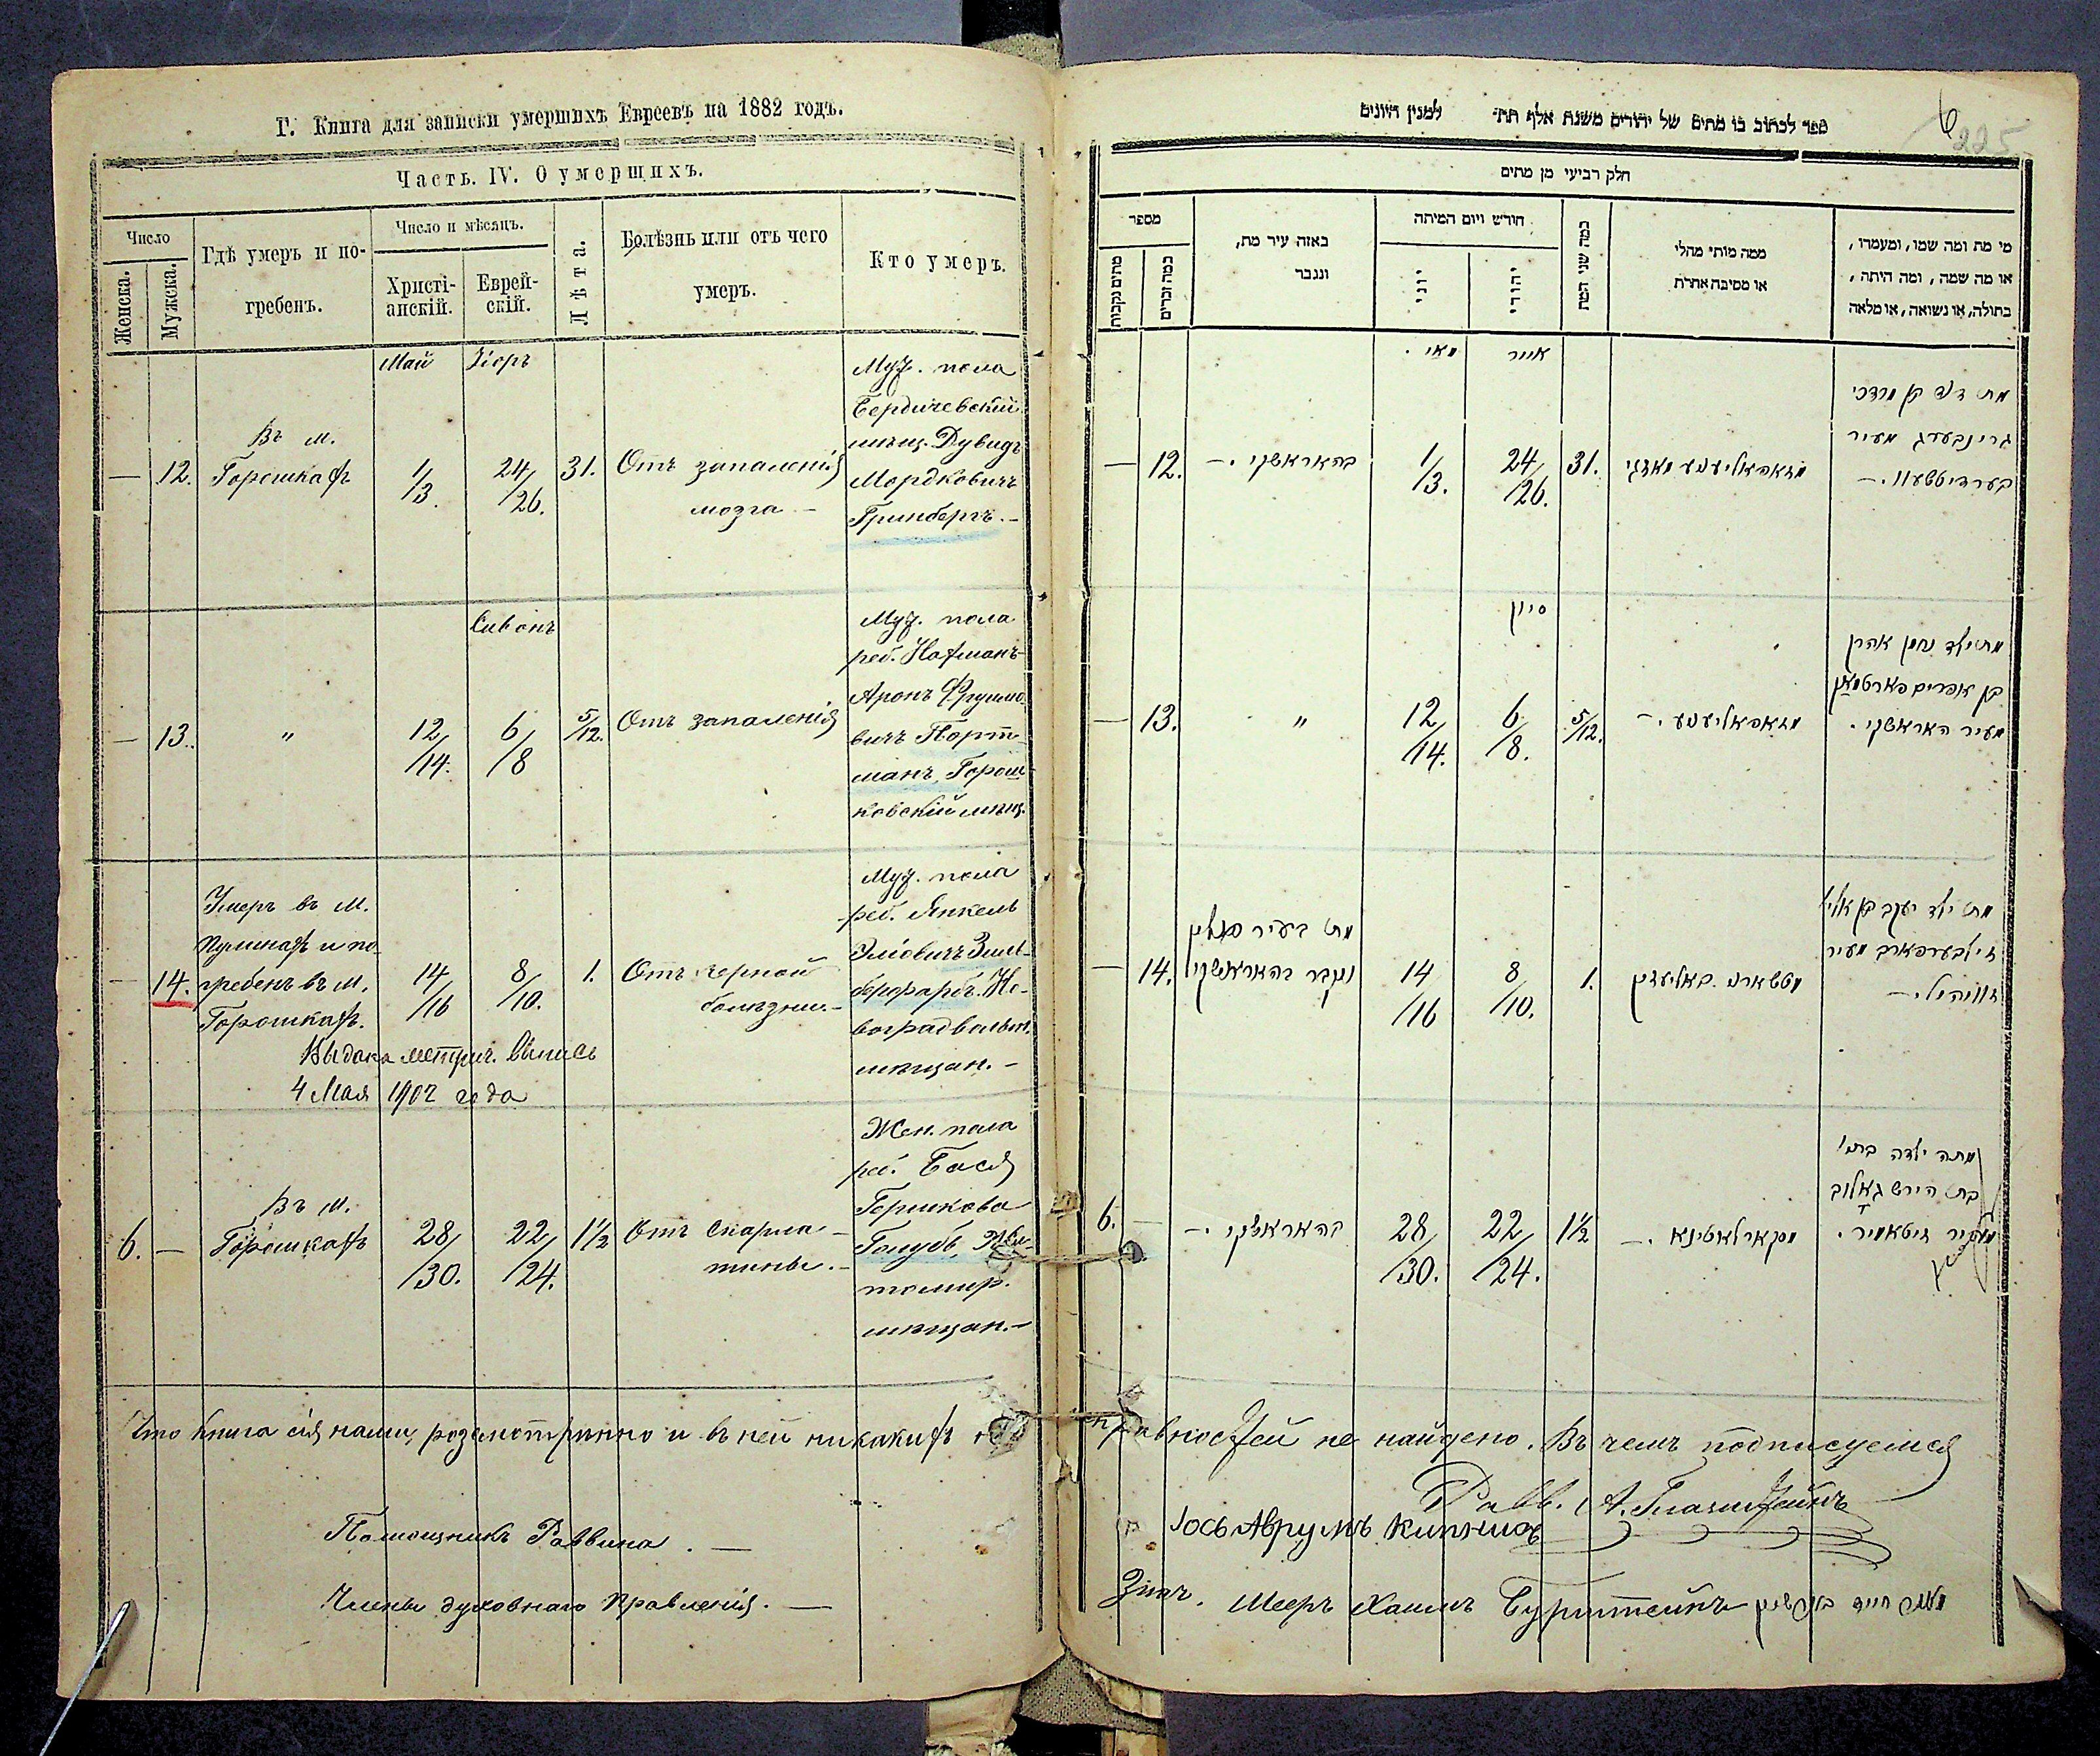 Г. Книга для записки умершихъ Евреевъ на 1882 годъ.
Часть. IV. О умершихъ.
Число
Женска.
Мужска.
Гдѣ умеръ и по-
гребенъ.
Число и мѣсяцъ.
Христі-
анскій.
Еврей-
скій.
Лѣта.
Болѣзнь или отъ чего
умеръ.
Кто умеръ.
Май
Іоръ
—
12.
Въ м.
Горошкахъ
1/3.
24/26.
31.
Отъ запаленія
мозга —
Муж. пола
Бердичевскій
мѣщ. Дувидъ
Мордковичъ
Гринбергъ. —
Сивонъ
—
13.
"
12/14.
6/8
5/12.
Отъ запаленія
Муж. пола
реб. Нахманъ-
Аронъ Фроимо-
вичъ Порт-
манъ, Горош-
ковскій мѣщ.
—
14.
Умеръ въ м.
Пулинахъ и по-
гребенъ въ м.
Горошкахъ.
14/16
8/10.
1.
Отъ черной
болѣзни. —
Муж. пола
реб. Янкель
Эліовичъ Зиль-
берфарбъ. Но-
воградволын.
мѣщан. —
Выдана метрич. выпись
4 Мая 1902 года
6.
—
Въ м.
Горошкахъ
28/30.
22/24.
1½
Отъ скарла-
тины. —
Жен. пола
реб. Бася
Гершкова
Голубъ, Жи-
томир.
мѣщан. —
Что книга сія нами розсмотрѣнно и въ ней никакихъ
Помощникъ Раввина. —
Члены духовнаго правленія. —
ספר לכתוב בו מתים של יהודים משנת אלף תת׳ למנין היונים
6
225
חלק רביעי מן מתים
מספר
מתים נקבות
כמה זכרים
באזה עיר מת,
ונגבר
חודש ויום המיתה
יוני
יהודי
כמה שני המת
ממה מותי מחלי
או מסיבה אחרת
מי מת ומה שמו, ומעמדו,
או מה שמה, ומה היתה,
בתולה, או נשואה, או מלאה
מאי
אייר
—
12.
בהאראשקי. —
1/3.
24/26.
31.
מת דוד בן מרדכי
גרינבערג מעיר
בערדיטשעוו. —
סיון
—
13.
"
12/14.
6/8.
5/12.
מת ילד נחמן אהרן
בן אפרים פארטמאן
מעיר האראשקי.
—
14.
מת בעיר פולין
ונקבר בהאראשקי
14/16
8/10.
1.
מת ילד יעקב בן אליי
זילבערפארב מעיר
זוויהיל. —
6.
—
בהאראשקי. —
28/30.
22/24.
1½
סקארלאטינא. —
מתה ילדה
בת הירש גאלוב
מעיר זיטאמיר.
правностей не найдено. Въ чемъ подписуемся
Равв. А. Глазштейнъ
Іось Аврумъ Кипнисъ
Мееръ Хаимъ Бурштейнъ